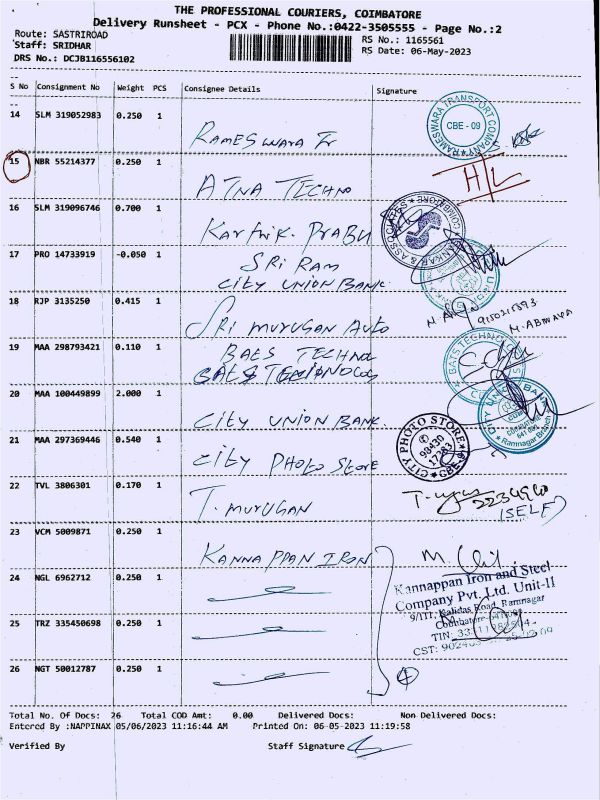 THE PROFESSIONAL COURIERS, COIMBATORE
Delivery Runsheet - PCX - Phone No.:0422-3505555 - Page No.:2
Route: SASTRIROAD
RS No.: 1165561
Staff: SRIDHAR
RS Date: 06-May-2023
DRS No.: DCJB116556102
S No Consignment No Weight PCS Consignee Details Signature
14 SLM 319052983 0.250 1
RAMESWARA Tr
RAMESWARA TRANSPORT COMPANY
CBE - 09
15 NBR 55214377 0.250 1
ATNA TECHNO
H/L
16 SLM 319096746 0.700 1
KARTHIK. PRABU
& ASSOCIATES
17 PRO 14733919 -0.050 1
SRI RAM
CITY UNION BANK
18 RJP 3135250 0.415 1
SRI MURUGAN AUTO
M. ABINAYA
19 MAA 298793421 0.110 1
BAES TECHNO
20 MAA 100449899 2.000 1
CITY UNION BANK
CITY UNION BANK
Ramnagar Branch
21 MAA 297369446 0.540 1
CITY PHOTO STORE
CITY PHOTO STORE
98430
22 TVL 3806301 0.170 1
T. MURUGAN
(SELF)
23 VCM 5009871 0.250 1
KANNAPPAN IRON
Kannappan Iron and Steel
Company Pvt. Ltd. Unit-II
Kalidas Road, Ramnagar
24 NGL 6962712 0.250 1
25 TRZ 335450698 0.250 1
TIN:
CST:
26 NGT 50012787 0.250 1
4
Total No. Of Docs: 26 Total COD Amt: 0.00 Delivered Docs: Non Delivered Docs:
Entered By :NAPPINAX 05/06/2023 11:16:44 AM Printed On: 06-05-2023 11:19:58
Verified By Staff Signature